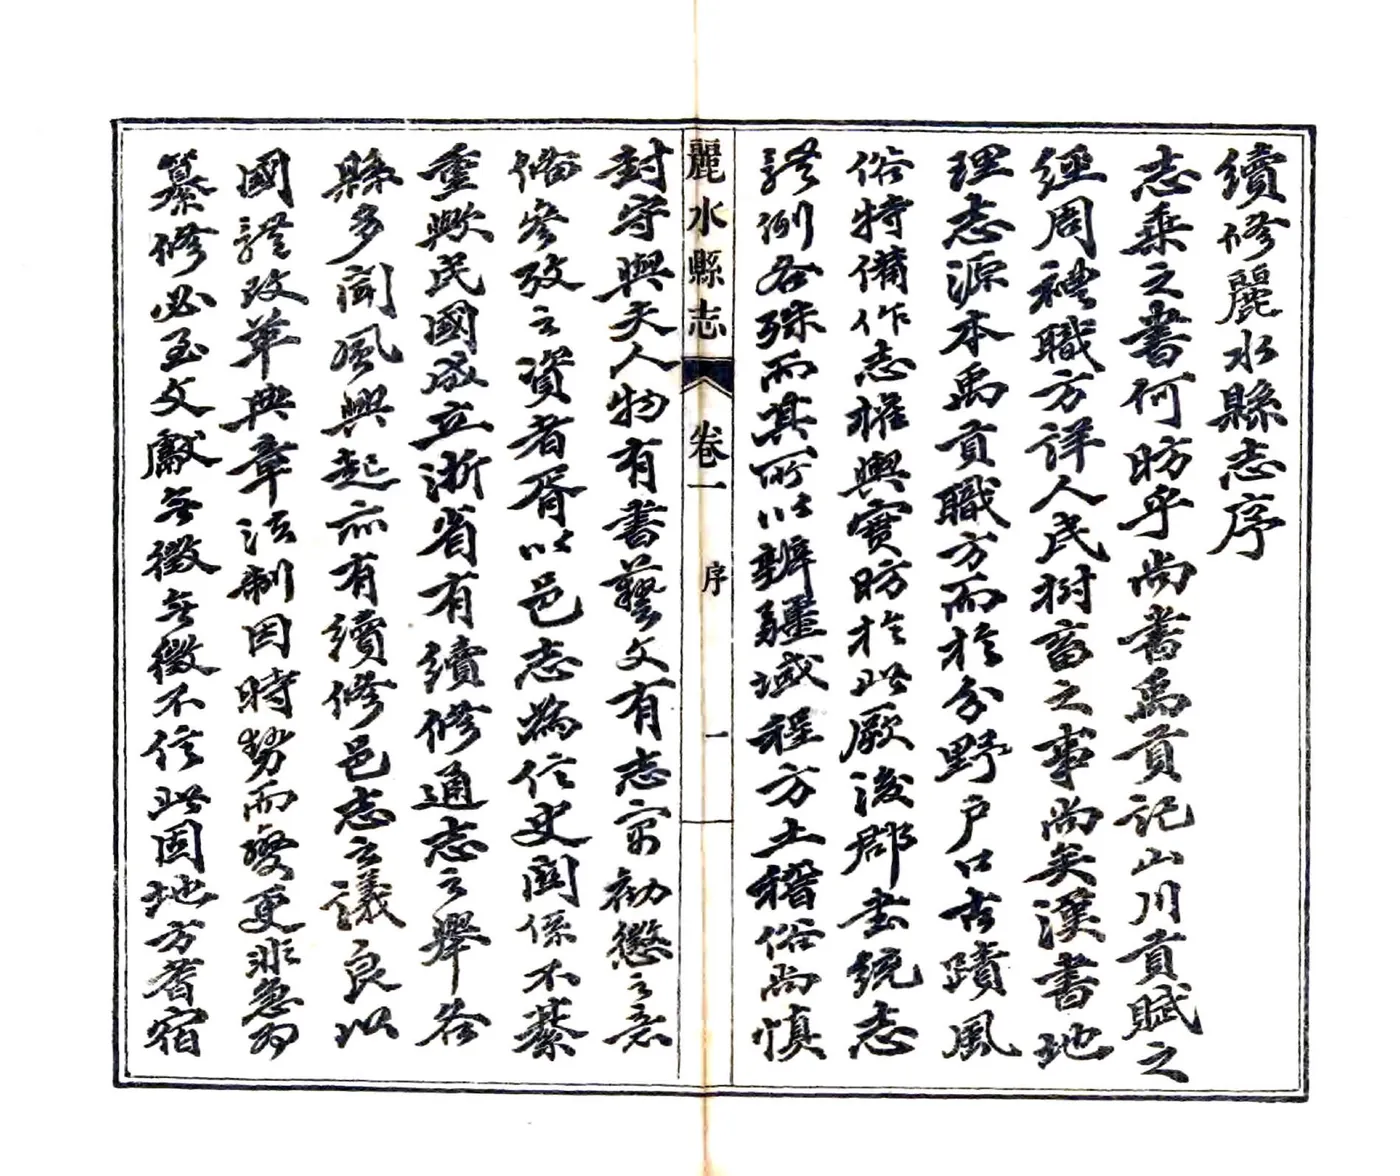 續修麗水縣志序
志乘之書何昉乎尚書禹貢記山川貢賦之
經周禮職方詳人民樹畜之事尚矣漢書地
理志源本禹貢職方而於分野戶口古蹟風
俗特備作志權輿實昉於此厥後郡書統志
體例各殊而其所以辨疆域程方土稽俗尚慎
麗水縣志
卷一
序
一
封守與夫人物有書藝文有志寓勸懲之意
備參攷之資者胥以邑志為信史關係不綦
重歟民國成立浙省有續修通志之舉各
縣多聞風興起亦有續修邑志之議良以
國體改革典章法制因時勢而變更非急為
纂修必至文獻無徵無徵不信此固地方耆宿